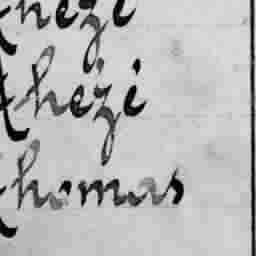 Thezi
Thezi
Thomas